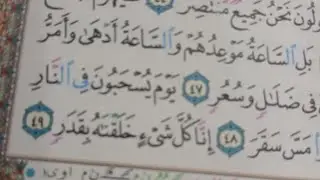 ولون نحن جميع منتصر ٤٤
بل الساعة موعدهم والساعة أدهى وأمر
في ضلال وسعر ٤٧ يوم يسحبون في النار
مس سقر ٤٨ إنا كل شيء خلقناه بقدر ٤٩